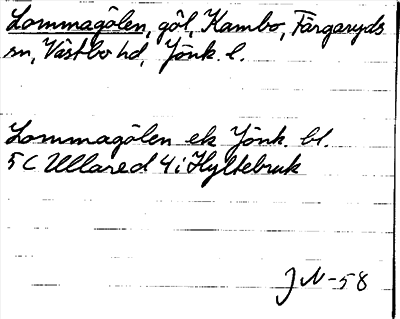 Lommagölen, göl, Kambo, Färgaryds
sn, Västbo hd, Jönk. l.
Lommagölen ek Jönk. bl.
5 C Ullared 4 i Hyltebruk
JN-58